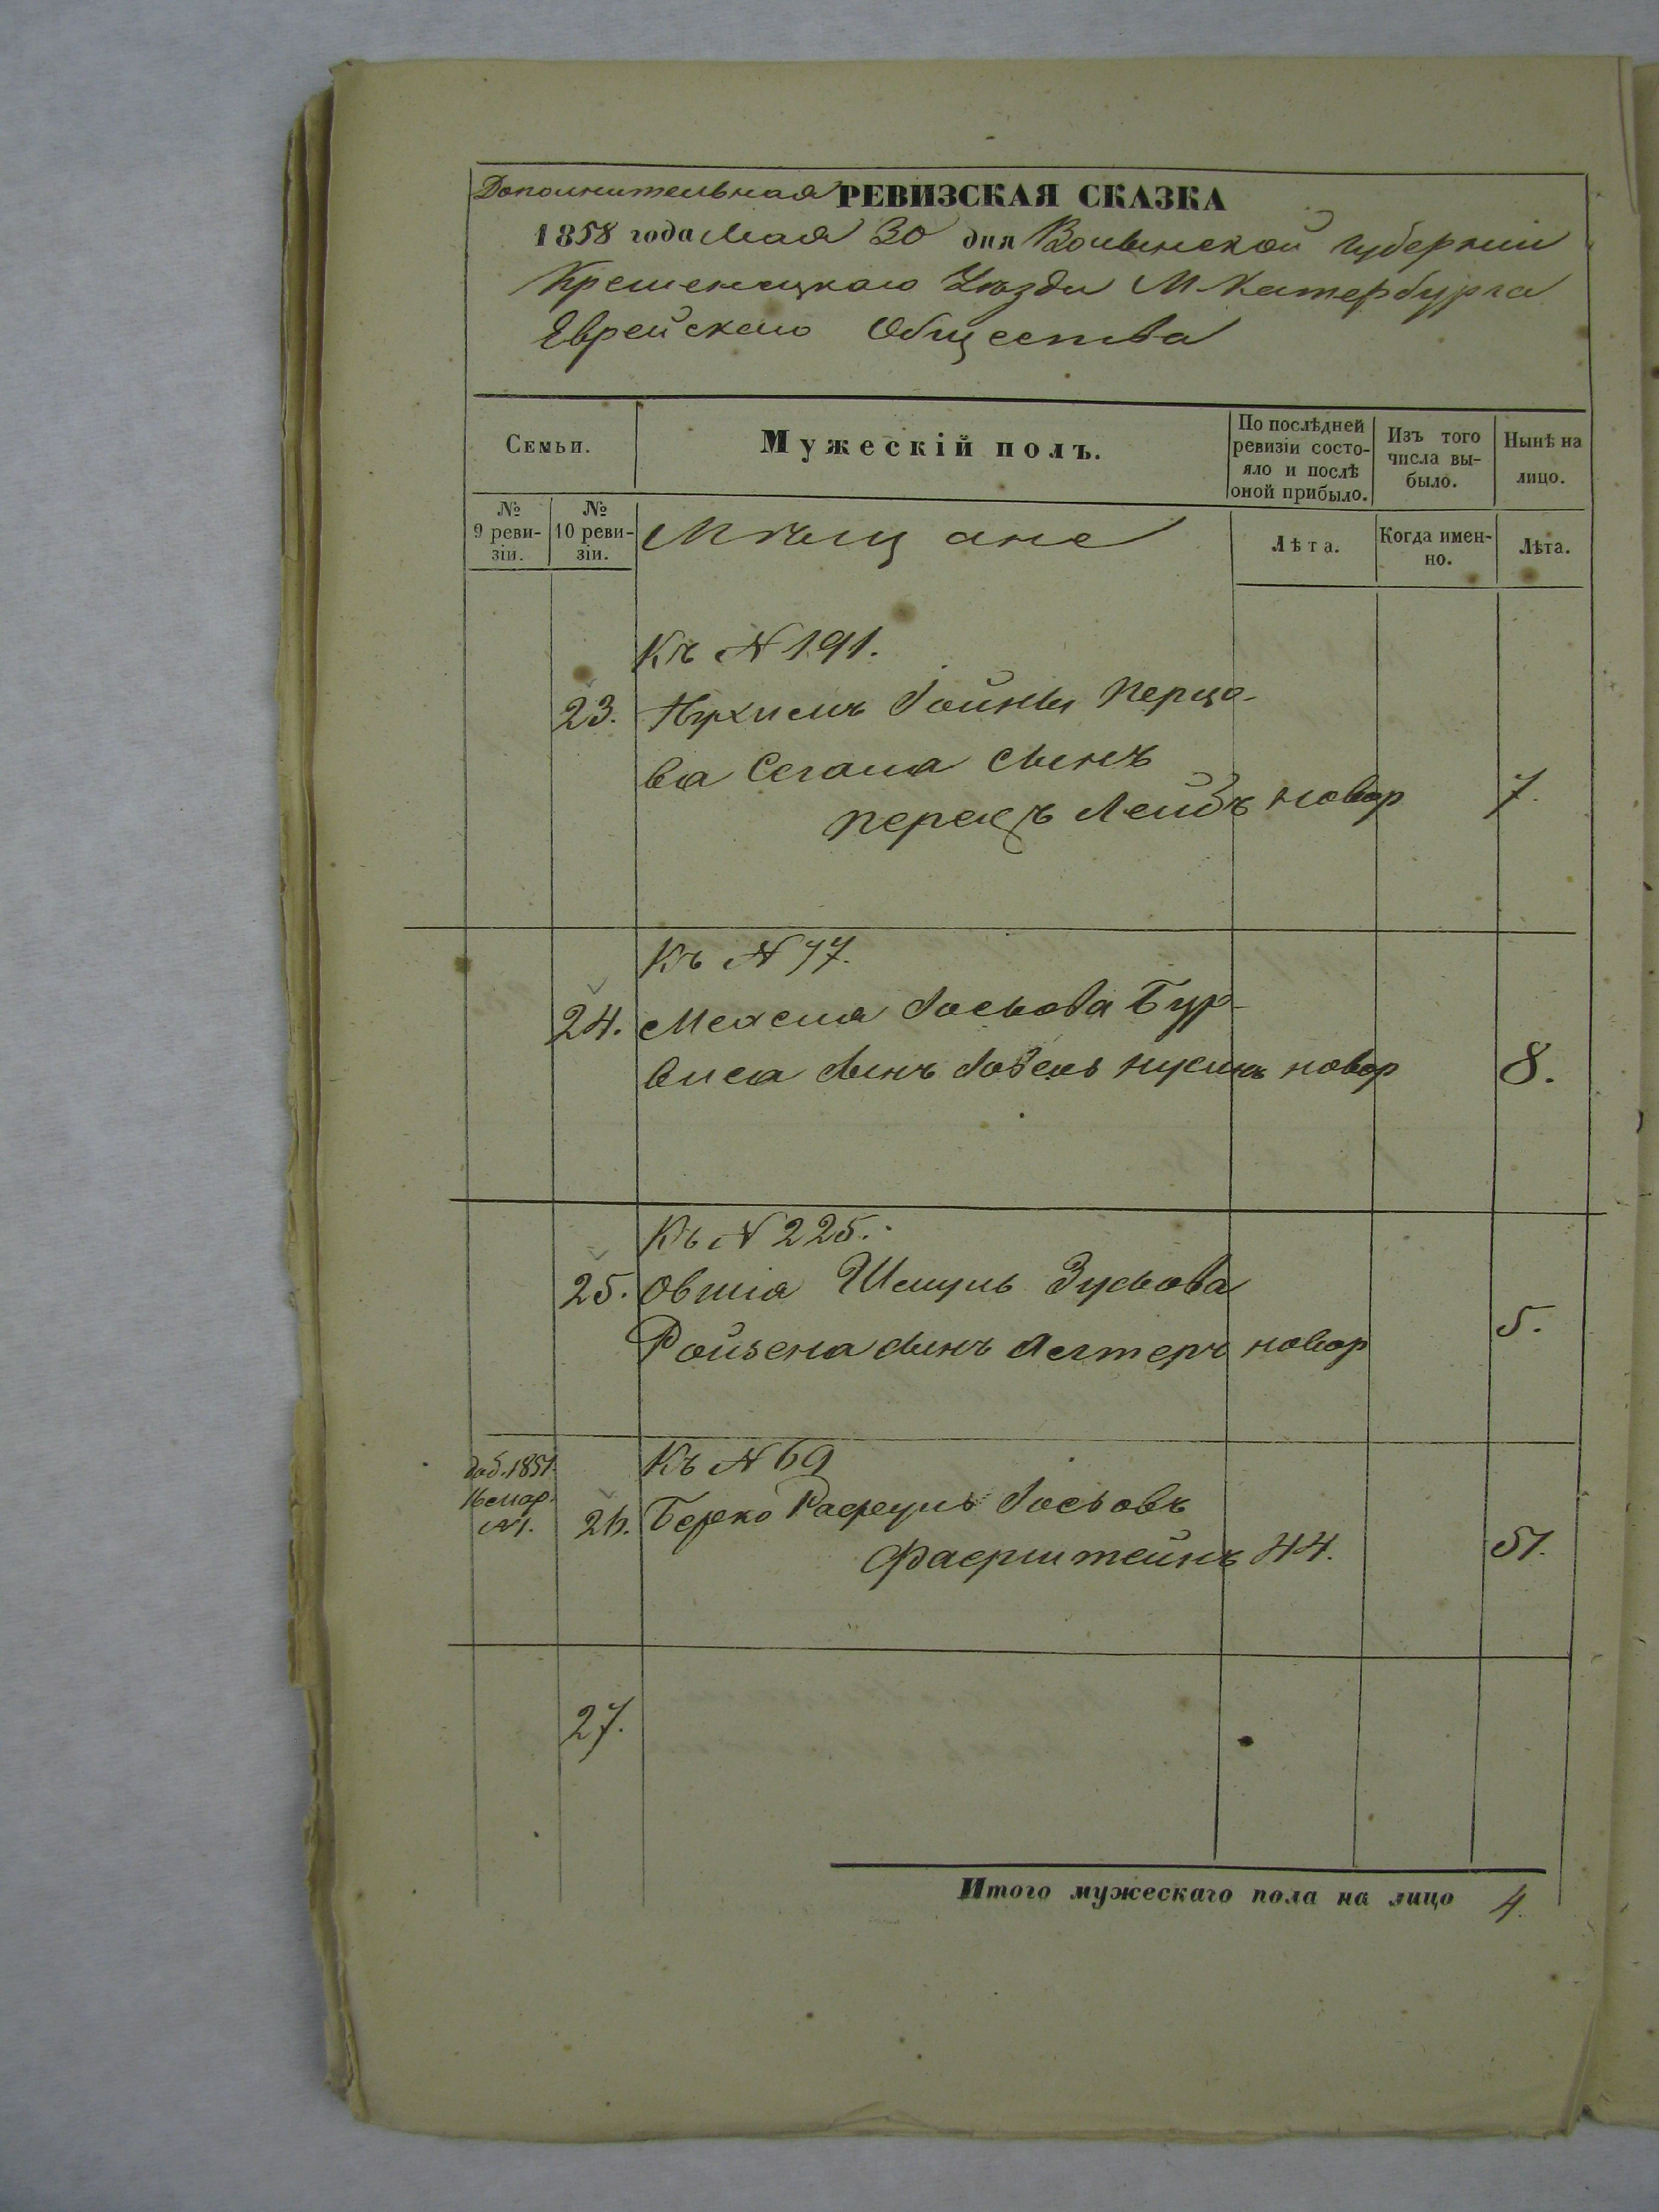 Дополнительная РЕВИЗСКАЯ СКАЗКА
1858 года Мая 30 дня Волынской Губерніи
Кременецкаго Уѣзда М. Катербурга
Еврейскаго Общества
Семьи.
Мужескій полъ.
По послѣдней ревизіи состояло и послѣ оной прибыло.
Изъ того числа выбыло.
Нынѣ на лицо.
№ 9 ревизіи.
№ 10 ревизіи.
Мѣщане
Лѣта.
Когда именно.
Лѣта.
Къ № 191.
23. Нухимъ Іойны Перцо-
ва Сегала сынъ
Перецъ Лейбъ новор 7.
Къ № 77.
24. Іосьова Бур-
сынъ новор 8.
Къ № 225.
25. Овшія Шмуль Зусьова
Ройзена сынъ Алтеръ новор 5.
доб. 1851
16 мар.
№1.
Къ № 69
26. Берко Рафуль Іосьовъ
Фаерштейнъ 44. 51.
27.
Итого мужескаго пола на лицо 4.